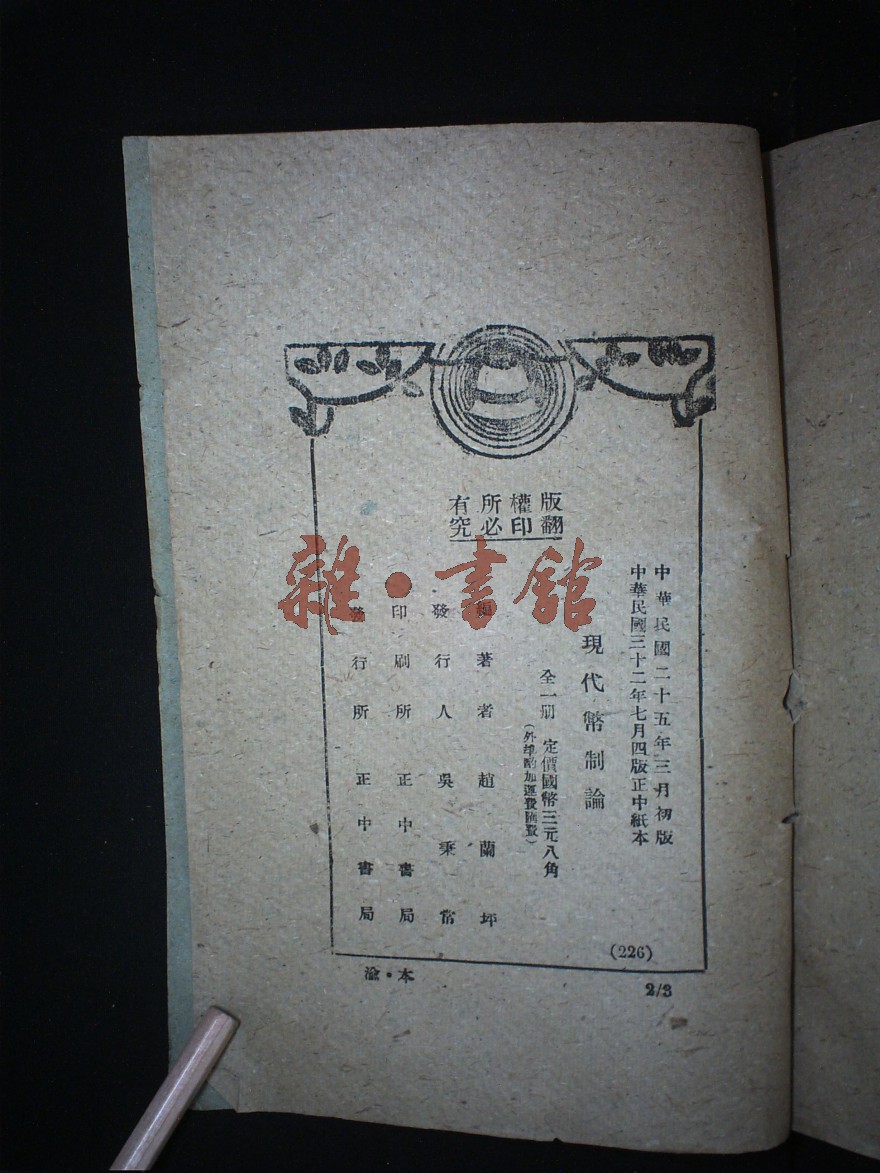 版權所有
翻印必究
中華民國二十五年三月初版
中華民國三十二年七月四版正中紙本
現代幣制論
全一册 定價國幣三元八角
(外埠酌加運費匯費)
編著者 趙蘭坪
發行人 吳秉常
印刷所 正中書局
發行所 正中書局
(226)
渝·本
2/3
雜·書館